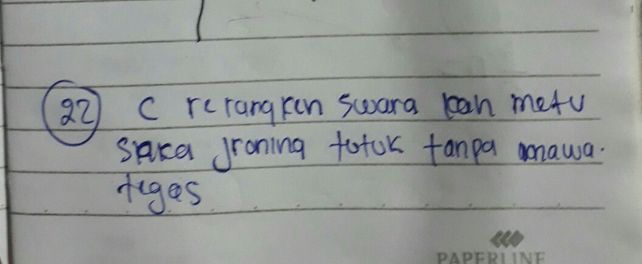 22 C rerangken swara kan metu
saka jroning tutuk tanpa mawa.
teges
PAPERLINE